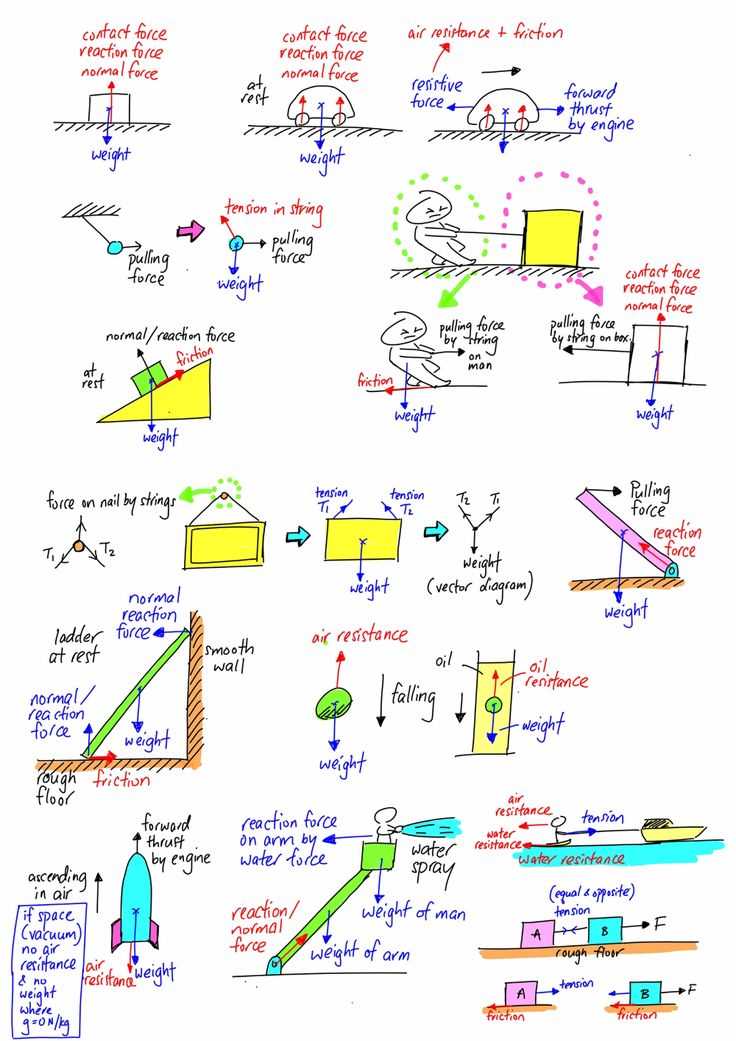 contact force
reaction force
normal force
weight
at
rest
contact force
reaction force
normal force
weight
air resistance + friction
resistive
force
forward
thrust
by engine
weight
pulling
force
tension in string
pulling
force
weight
contact force
reaction force
normal force
pulling force
by string
on
man
friction
weight
pulling force
by string on box
weight
normal/reaction force
at
rest
friction
weight
force on nail by strings
T1
T2
tension
T1
tension
T2
weight
T2
T1
weight
(vector diagram)
Pulling
force
reaction
force
weight
normal
reaction
force
ladder
at rest
smooth
wall
normal/
reaction
force
weight
rough
floor
friction
air resistance
falling
weight
oil
oil
resistance
weight
forward
thrust
by engine
ascending
in air
if space
(vacuum)
no air
resistance
& no
weight
where
g=0N/kg
air
resistance
weight
reaction force
on arm by
water force
water
spray
weight of man
reaction/
normal
force
weight of arm
air
resistance
tension
water
resistance
water resistance
(equal & opposite)
tension
A
B
F
rough floor
A
tension
B
F
friction
friction